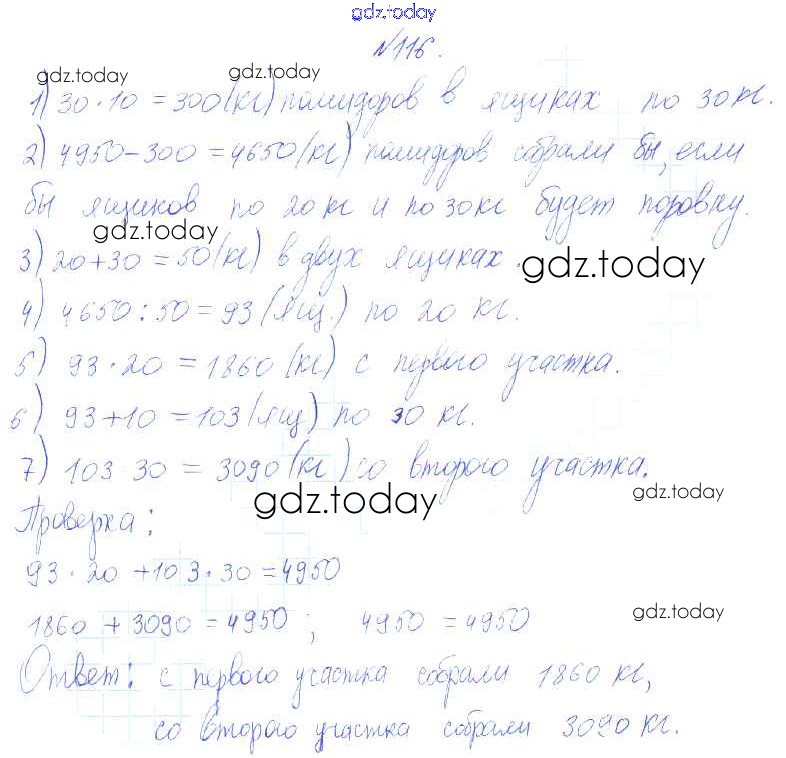 gdz.today
№116.
gdz.today gdz.today
1) 30·10=300(кг) помидоров в ящиках по 30кг.
2) 4950-300=4650(кг) помидоров собрали бы, если
бы ящиков по 20 кг и по 30 кг будет поровну.
gdz.today
3) 20+30=50(кг) в двух ящиках.
gdz.today
4) 4650:50=93(ящ.) по 20 кг.
5) 93·20=1860(кг) с первого участка.
6) 93+10=103(ящ) по 30 кг.
7) 103 30=3090(кг) со второго участка.
gdz.today gdz.today
Проверка:
93·20+103·30=4950
1860+3090=4950; 4950=4950
gdz.today
Ответ: с первого участка собрали 1860 кг,
со второго участка собрали 3090 кг.